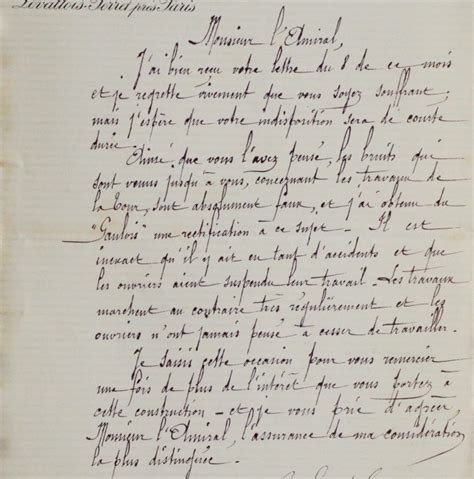 Levallois-Perret près Paris
Monsieur l'Amiral,
J'ai bien reçu votre lettre du 8 de ce mois
et je regrette vivement que vous soyez souffrant,
mais j'espère que votre indisposition sera de courte
durée.
Ainsi, que vous l'avez pensé, les bruits qui
sont venus jusqu'à vous, concernant les travaux de
la Tour, sont absolument faux, et j'ai obtenu du
"Gaulois" une rectification à ce sujet - Il est
inexact qu'il y ait eu tant d'accidents et que
les ouvriers aient suspendu leur travail - Les travaux
marchent au contraire très régulièrement et les
ouvriers n'ont jamais pensé à cesser de travailler.
Je saisis cette occasion pour vous remercier
une fois de plus de l'intérêt que vous portez à
cette construction - et je vous prie d'agréer,
Monsieur l'Amiral, l'assurance de ma considération
la plus distinguée.